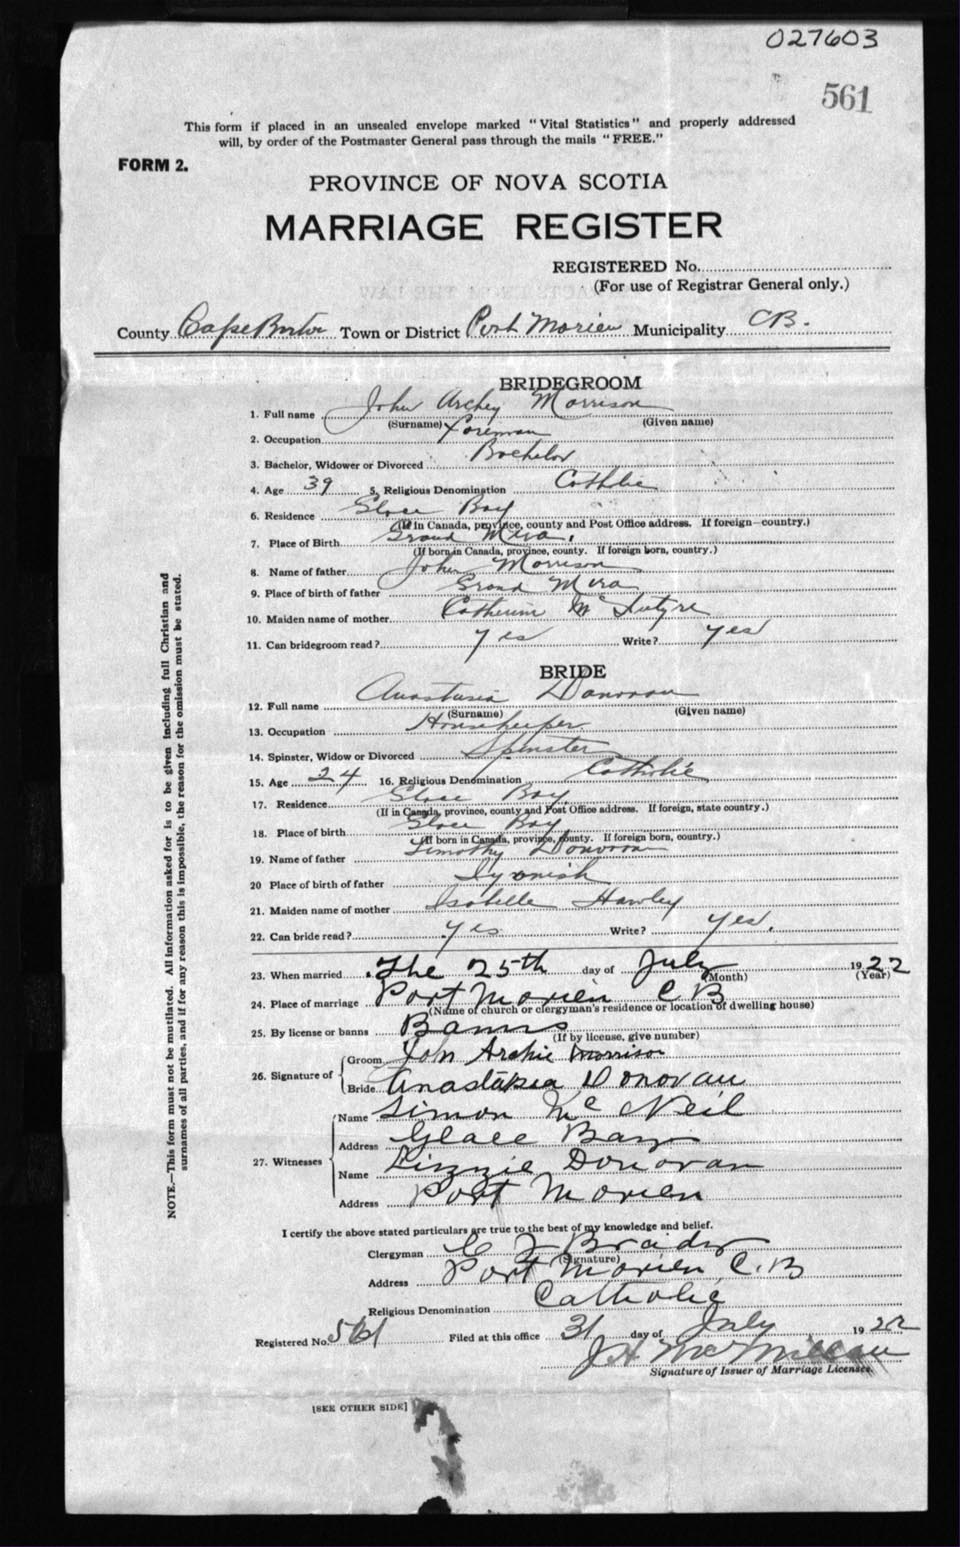 027603
561
This form if placed in an unsealed envelope marked "Vital Statistics" and properly addressed
will, by order of the Postmaster General pass through the mails "FREE."
FORM 2.
PROVINCE OF NOVA SCOTIA
MARRIAGE REGISTER
REGISTERED No.
(For use of Registrar General only.)
County Cape Breton Town or District Port Morien Municipality CB.
BRIDEGROOM
1. Full name John Archey Morrison
(Surname) (Given name)
2. Occupation Foreman
3. Bachelor, Widower or Divorced Bachelor
4. Age 39 5. Religious Denomination Cathlic
6. Residence Glace Bay
(If in Canada, province, county and Post Office address. If foreign—country.)
7. Place of Birth Grand Mira.
(If born in Canada, province, county. If foreign born, country.)
8. Name of father John Morrison
9. Place of birth of father Grand Mira
10. Maiden name of mother Catherine McIntyre
11. Can bridegroom read? yes Write? yes
BRIDE
12. Full name Anastasia Donovan
(Surname) (Given name)
13. Occupation Housekeeper
14. Spinster, Widow or Divorced Spinster
15. Age 24 16. Religious Denomination Catholic
17. Residence Glace Bay
(If in Canada, province, county and Post Office address. If foreign, state country.)
18. Place of birth Glace Bay
(If born in Canada, province, county. If foreign born, country.)
19. Name of father Timothy Donovan
20 Place of birth of father Ingonish
21. Maiden name of mother Isabelle Hawley
22. Can bride read? yes Write? yes.
23. When married The 25th day of July 1922
(Month) (Year)
24. Place of marriage Port Morien C B
(Name of church or clergyman's residence or location of dwelling house)
25. By license or banns Banns
(If by license, give number)
26. Signature of Groom Jon Archie Morrison
Bride Anastasia Donovan
27. Witnesses Name Simon McNeil
Address Glace Bay
Name Lizzie Donovan
Address Port Morien
I certify the above stated particulars are true to the best of my knowledge and belief.
Clergyman
(Signature)
Address Port Morien C.B
Religious Denomination Catholic
Registered No. 561 Filed at this office 31 day of July 1922
J H McMillan
Signature of Issuer of Marriage Licenses.
[SEE OTHER SIDE]
NOTE.—This form must not be mutilated. All information asked for is to be given including full Christian and
surnames of all parties, and if for any reason this is impossible, the reason for the omission must be stated.